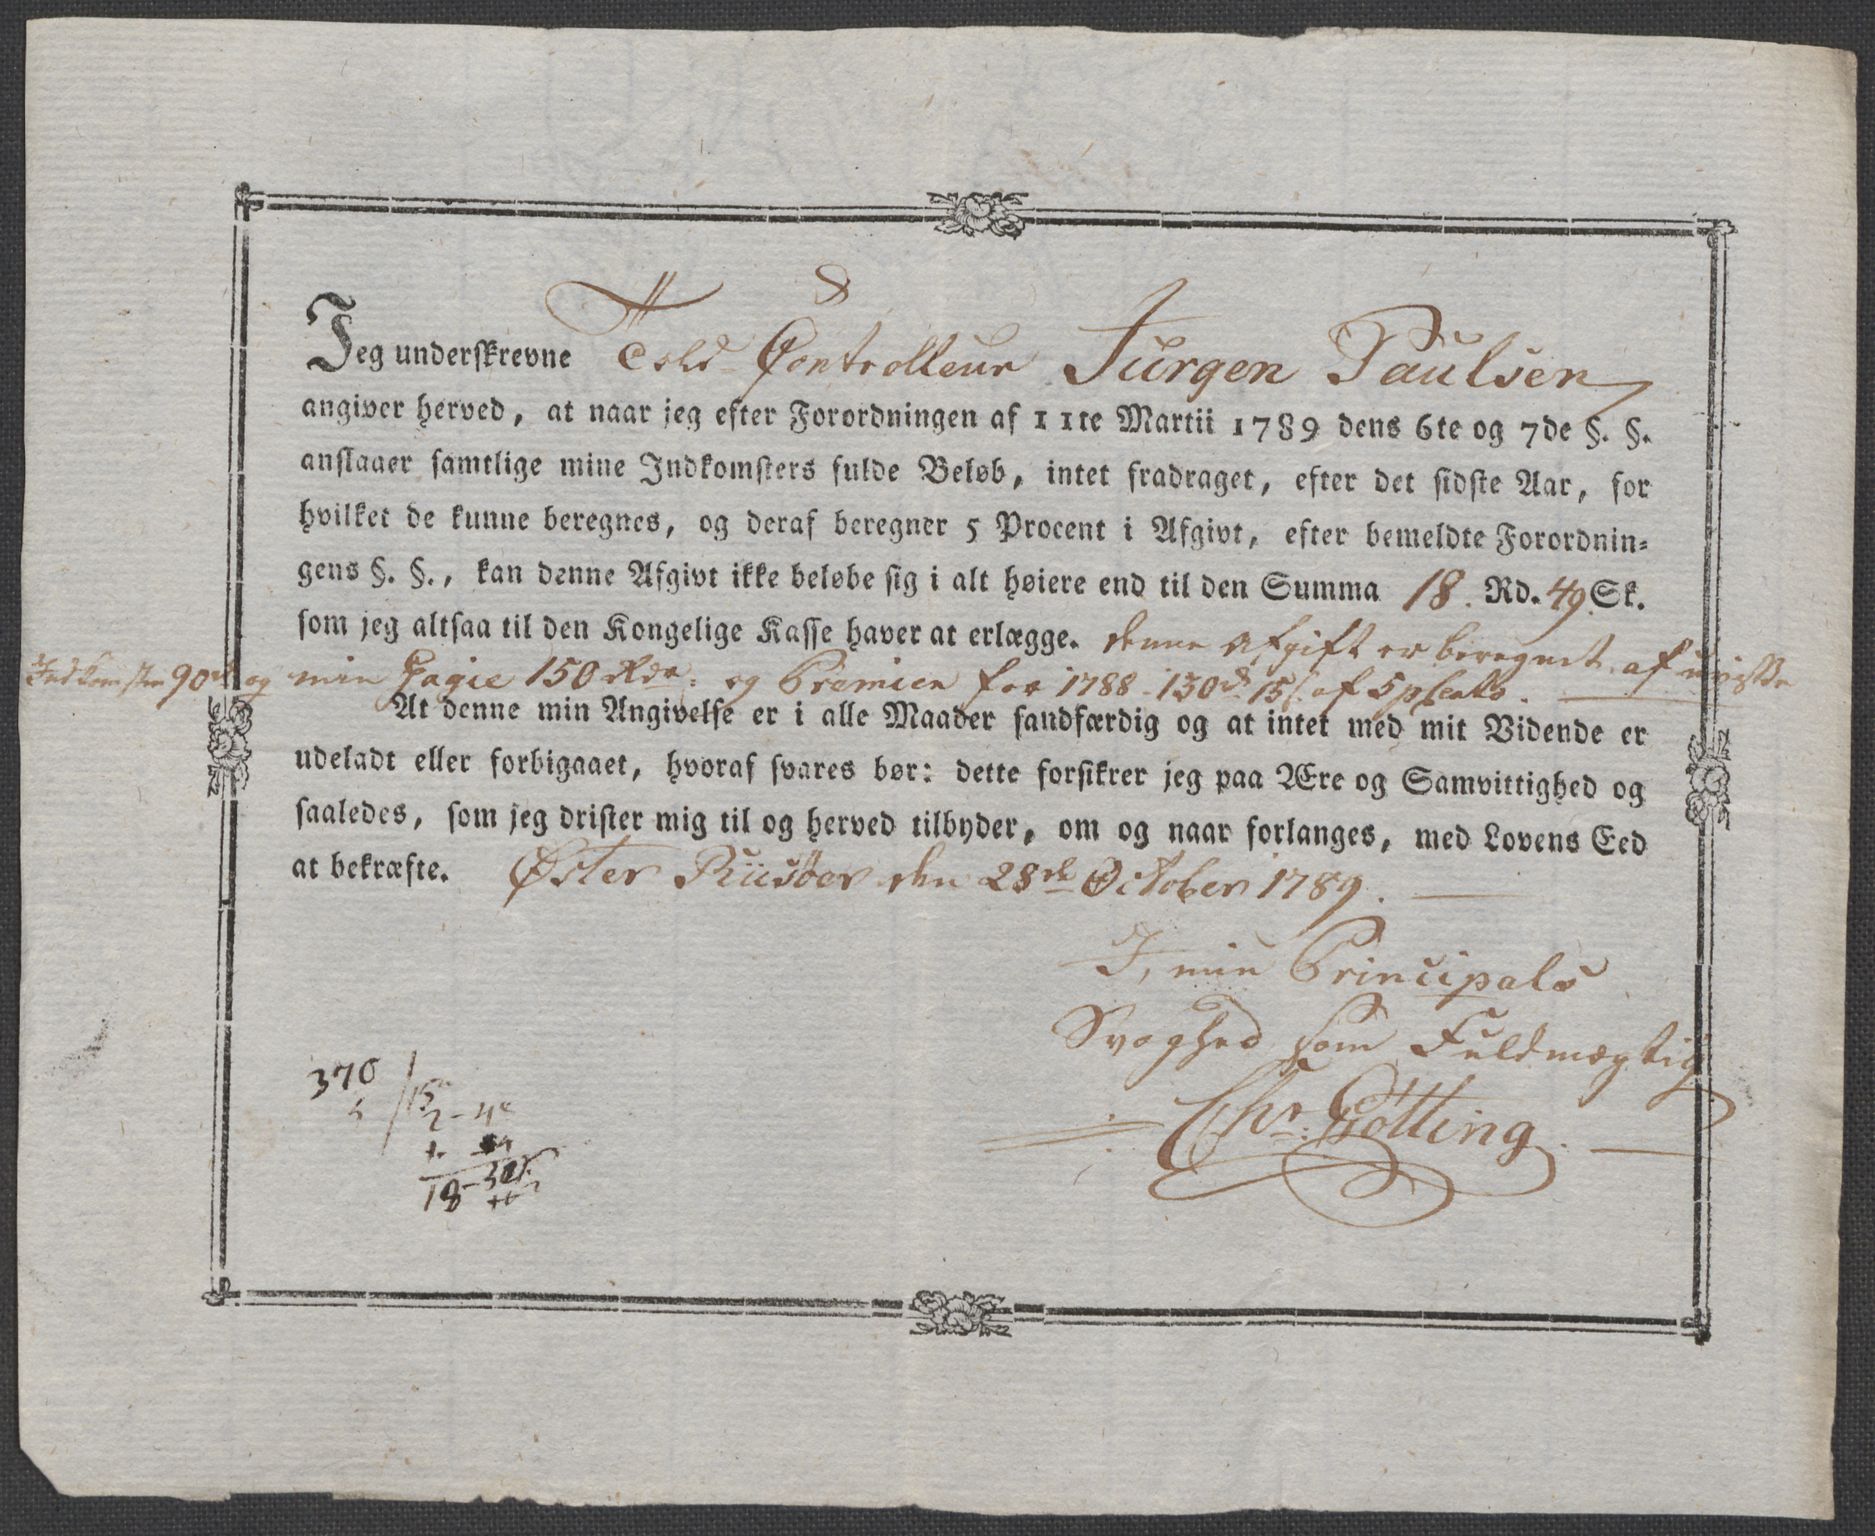 Jeg underskrevne Told Controlleur Jürgen Paulsen
angiver herved, at naar jeg efter Forordningen af 11te Martii 1789 dens 6te og 7de §. §.
anslaaer samtlige mine Indkomsters fulde Beløb, intet fradraget, efter det sidste Aar, for
hvilket de kunne beregnes, og deraf beregner 5 Procent i Afgivt, efter bemeldte Forordnin-
gens §. §., kan denne Afgivt ikke beløbe sig i alt høiere end til den Summa 18. Rd. 49 Sk.
som jeg altsaa til den Kongelige Kasse haver at erlægge. denne Afgift er beregnet af uvisse
Indkomster 90rd og min Gagie 150 Rdr: og Premien for 1788 - 130rd 15s. af 5 pCento.
At denne min Angivelse er i alle Maader sandfærdig og at intet med mit Vidende er
udeladt eller forbigaaet, hvoraf svares bør: dette forsikrer jeg paa Ære og Samvittighed og
saaledes, som jeg drister mig til og herved tilbyder, om og naar forlanges, med Lovens Eed
at bekræfte. Øster Riisöer den 28de October 1789.
I, min Principals
Svaghed som Fuldmægtig
Chr. Götting
370
18-